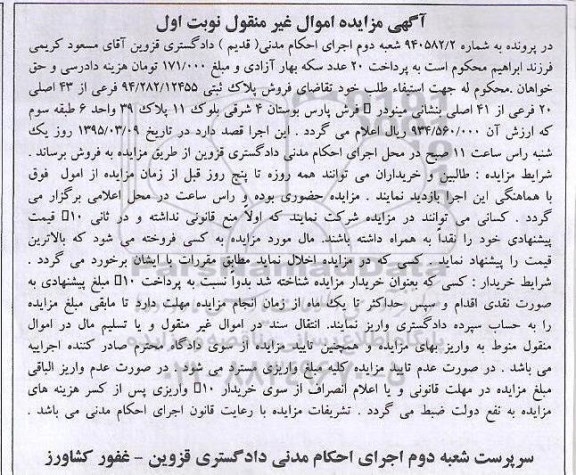 آگهی مزایده اموال غیر منقول نوبت اول
در پرونده به شماره ۹۴۰۵۸۲/۲ شعبه دوم اجرای احکام مدنی( قدیم ) دادگستری قزوین آقای مسعود کریمی
فرزند ابراهیم محکوم است به پرداخت ۲۰ عدد سکه بهار آزادی و مبلغ ۱۷۱/۰۰۰ تومان هزینه دادرسی و حق
خواهان .محکوم له جهت استیفاء طلب خود تقاضای فروش پلاک ثبتی ۹۴/۲۸۲/۱۲۴۵۵ فرعی از ۴۳ اصلی
۲۰ فرعی از ۴۱ اصلی بنشانی مینودر فرش پارس بوستان ۴ شرقی بلوک ۱۱ پلاک ۳۹ واحد ۶ طبقه سوم
که ارزش آن ۹۳۴/۵۶۰/۰۰۰ ریال اعلام می گردد . این اجرا قصد دارد در تاریخ ۱۳۹۵/۰۳/۰۹ روز یک
شنبه راس ساعت ۱۱ صبح در محل اجرای احکام مدنی دادگستری قزوین از طریق مزایده به فروش برساند .
شرایط مزایده : طالبین و خریداران می توانند همه روزه تا پنج روز قبل از زمان مزایده از امول فوق
با هماهنگی این اجرا بازدید نمایند . مزایده حضوری بوده و راس ساعت در محل اعلامی برگزار می
گردد . کسانی می توانند در مزایده شرکت نمایند که اولاً منع قانونی نداشته و در ثانی ۱۰ قیمت
پیشنهادی خود را نقداً به همراه داشته باشند. مال مورد مزایده به کسی فروخته می شود که بالاترین
قیمت را پیشنهاد نماید . کسی که در مزایده اخلال نماید مطابق مقررات با ایشان برخورد می گردد .
شرایط خریدار : کسی که بعنوان خریدار مزایده شناخته شد بدواً نسبت به پرداخت ۱۰ مبلغ پیشنهادی به
صورت نقدی اقدام و سپس حداکثر تا یک ماه از زمان انجام مزایده مهلت دارد تا مابقی مبلغ مزایده
را به حساب سپرده دادگستری واریز نمایند. انتقال سند در اموال غیر منقول و یا تسلیم مال در اموال
منقول منوط به واریز بهای مزایده و همچنین تایید مزایده از سوی دادگاه محترم صادر کننده اجراییه
می باشد . در صورت عدم تایید مزایده کلیه مبلغ واریزی مسترد می شود . در صورت عدم واریز الباقی
مبلغ مزایده در مهلت قانونی و یا اعلام انصراف از سوی خریدار ۱۰ واریزی پس از کسر هزینه های
مزایده به نفع دولت ضبط می گردد . تشریفات مزایده با رعایت قانون اجرای احکام مدنی می باشد .
سرپرست شعبه دوم اجرای احکام مدنی دادگستری قزوین - غفور کشاورز
ParsNamadData